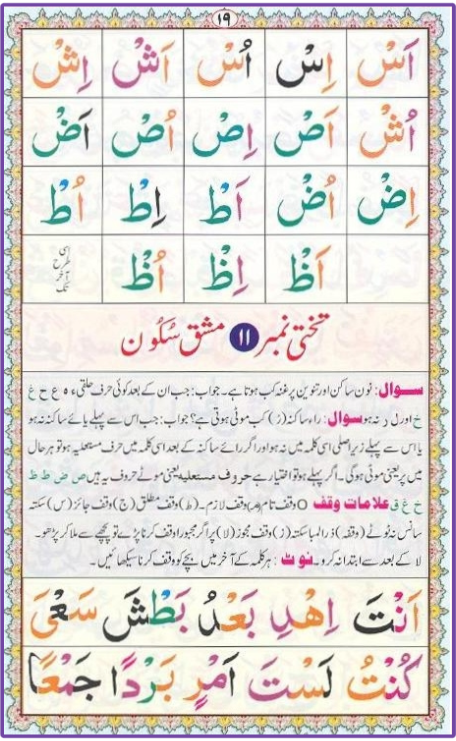 ۱۹
اَسْ اِسْ اُسْ اَشْ اِشْ
اُشْ اَصْ اِصْ اُصْ اَضْ
اِضْ اُضْ اَطْ اِطْ اُطْ
اَظْ اِظْ اُظْ اسی طرح آخر تک
تختی نمبر ۱۱ مشق سُکُون
سوال: نون ساکن اور تنوین پر غنہ کب ہوتا ہے۔ جواب: جب ان کے بعد کوئی حرف حلقی ء ہ ع ح غ
خ اور ل ر نہ ہو سوال: راء ساکنہ (رْ) کب موٹی ہوتی ہے؟ جواب: جب اس سے پہلے یائے ساکنہ نہ ہو
یا اس سے پہلے زیر اصلی اسی کلمہ میں نہ ہو اور اگر رائے ساکنہ کے بعد اسی کلمہ میں حرف مستعلیہ ہو تو ہر حال
میں پر یعنی موٹی ہوگی۔ اگر پہلے ہو تو اختیار ہے حروف مستعلیہ یعنی موٹے حروف یہ ہیں ص ض ط ظ
خ غ ق علامات وقف O وقف تام (مـ) وقف لازم۔ (ط) وقف مطلق (ج) وقف جائز (س) سکتہ
سانس نہ ٹوٹے (وقفہ) ذرا لمبا سکتہ (ز) وقف مجوز (لا) پر اگر مجبوراً وقف کرنا پڑے تو پیچھے سے ملا کر پڑھو۔
لا کے بعد سے ابتدا نہ کرو۔ نوٹ: ہر کلمہ کے آخر میں بچے کو وقف کرنا سیکھائیں۔
اَنْتَ اِهْدِ بَعْدُ بَطْشَ سَعْیَ
كُنْتُ لَسْتَ اَمْرٍ بَرْدًا جَمْعًا